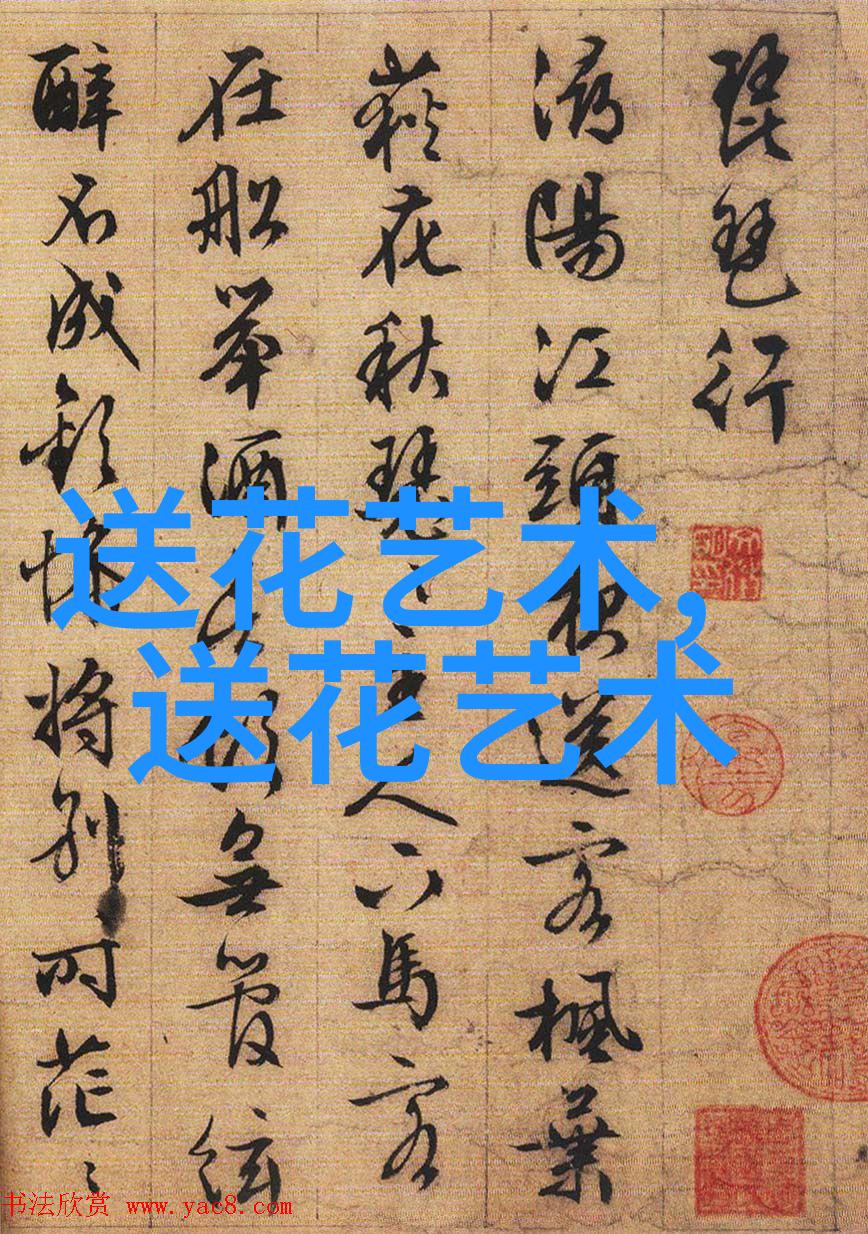 琵琶行
潯陽江頭夜送客楓葉
荻花秋瑟〻主人下馬客
在船舉酒欲飲無管絃
醉不成歡慘將別時茫〻
送花艺术,
送花艺术
书法欣赏 www.yac8.com